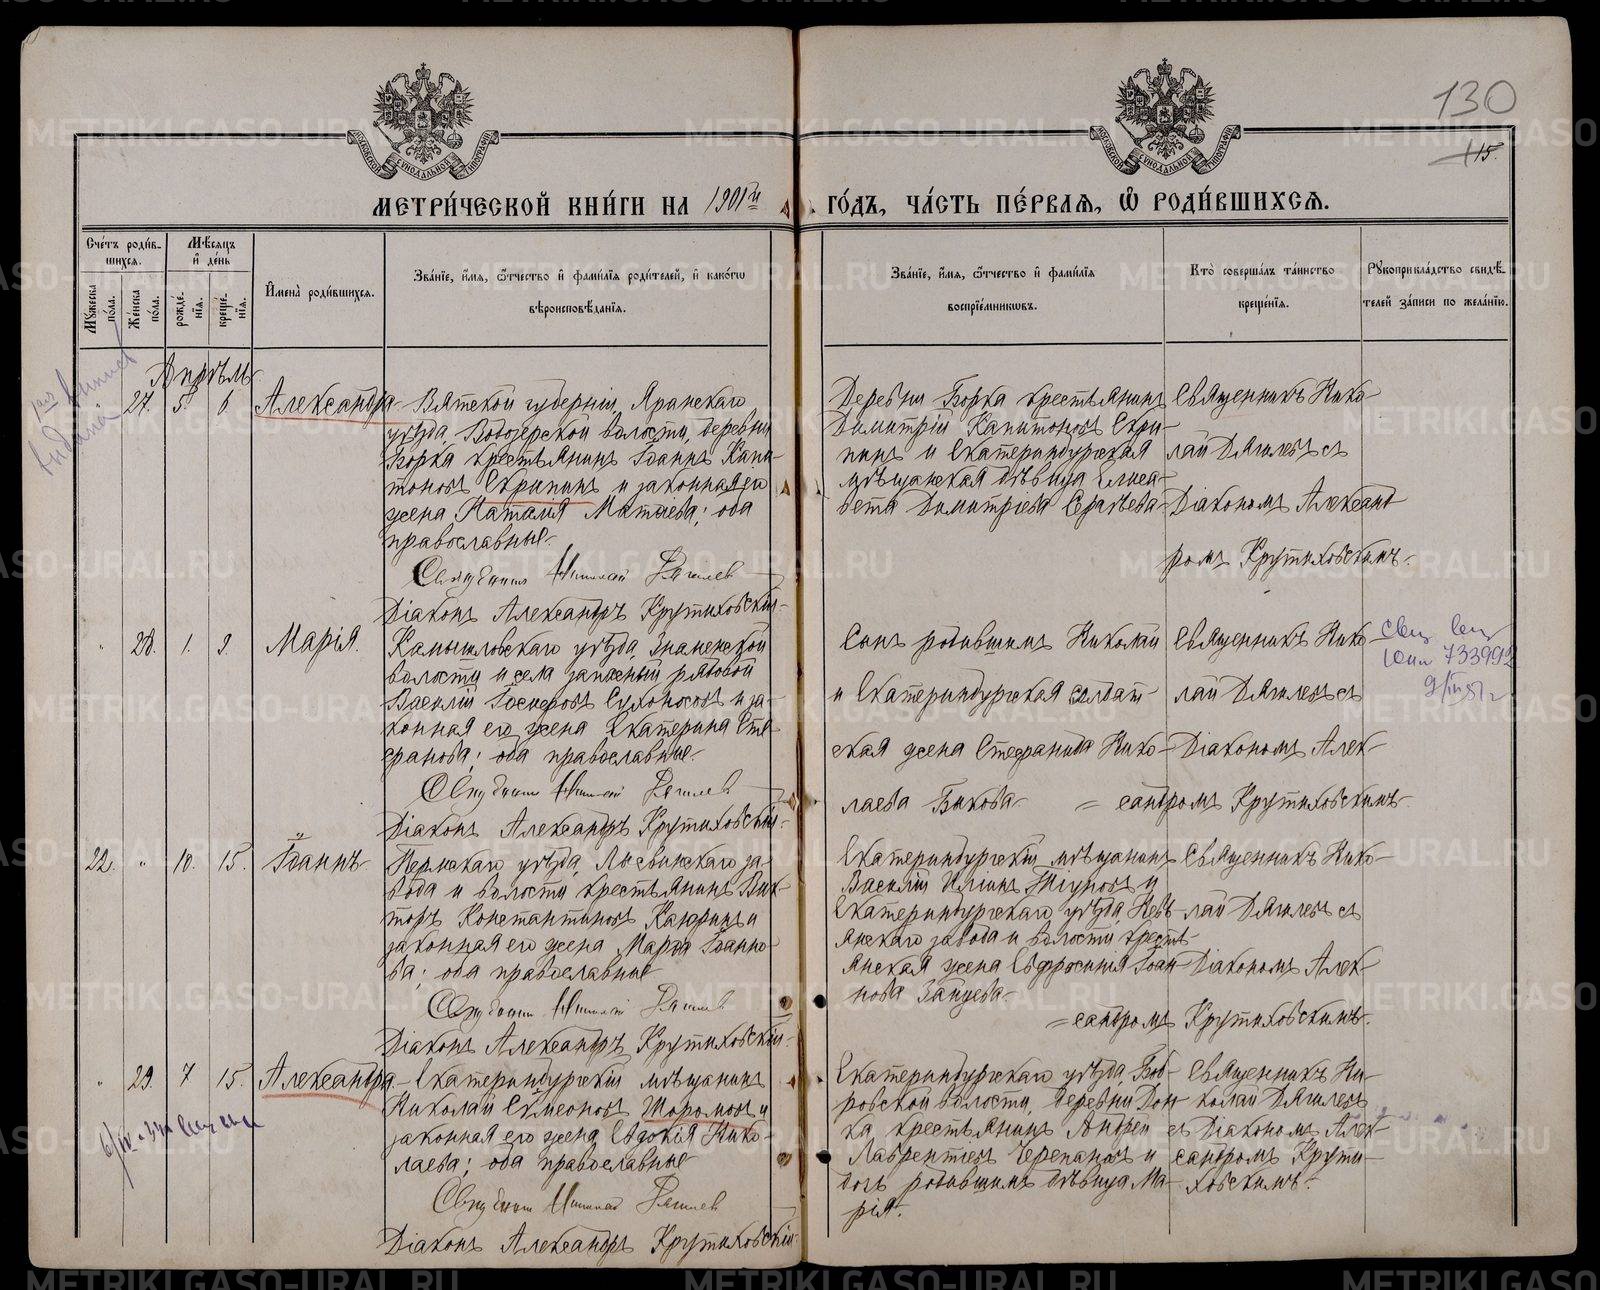 130
15.
МЕТРИ́ЧЕСКОЙ КНИ́ГИ НА 1901й ГО́ДЪ, ЧА́СТЬ ПЕ́РВАѦ, Ѡ҆ РОДИ́ВШИХСѦ.
Сче́тъ роди́в-
шихсѧ.
Мꙋ́жеска по́ла.
Же́нска по́ла.
Мѣ́сѧцъ и҆ де́нь
рожде́-нїѧ.
креще́-нїѧ.
И҆мена̀ роди́вшихсѧ.
Зва́нїе, и҆́мѧ, ѻ҆́тчество и҆ фами́лїѧ роди́телей, и҆ како́гѡ
вѣроисповѣ́данїѧ.
Зва́нїе, и҆́мѧ, ѻ҆́тчество и҆ фами́лїѧ
воспрїе́мникѡвъ.
Кто̀ соверша́лъ та́инство
креще́нїѧ.
Рꙋкоприкла́дство свидѣ́-
телей за́писи по жела́нїю.
Апрѣль
27. 5. 6. Александра
Вятской губерніи Яранскаго
уѣзда, Водозерской волости, деревни
Борка крестьянинъ Іоаннъ Капи-
тоновъ Скрипинъ и законная его
жена Наталія Матѳіева; оба
православные.
Священникъ Николай Дягилевъ
Діаконъ Александръ Крутиховскій.
Деревни Борка крестьянинъ
Димитрій Капитоновъ Скри-
пинъ и Екатеринбургская
мѣщанская дѣвица Елиса-
вета Димитріева Сергѣева.
Священникъ Нико-
лай Дягилевъ съ
Діакономъ Александ
ромъ Крутиховскимъ.
" 28. 1. 9. Марія.
Камышловскаго уѣзда, Знаменской
волости и села запасный рядовой
Василій Іосифовъ Сухоносовъ и за-
конная его жена Екатерина Сте-
фанова; оба православные.
Священникъ Николай Дягилевъ
Діаконъ Александръ Крутиховскій.
Сынъ родившимъ Николай
и Екатеринбургская солдат-
ская жена Стефанида Нико-
лаева Быкова.
Священникъ Нико-
лай Дягилевъ съ
Діакономъ Алек-
=сандромъ Крутиховскимъ.
733992
22. " 10. 15. Іоаннъ.
Пермскаго уѣзда, Лысвенскаго за-
вода и волости крестьянинъ Вик-
торъ Константиновъ Каюринъ и
законная его жена Марѳа Іоанно-
ва; оба православные
Священникъ Николай Дягилевъ
Діаконъ Александръ Крутиховскій.
Екатеринбургскій мѣщанинъ
Василій Иліинъ Тіуновъ и
Екатеринбургскаго уѣзда, Невь-
янскаго завода и волости кресть-
янская жена Евфросинія Іоан-
нова Зануева.
Священникъ Нико-
лай Дягилевъ съ
Діакономъ Алек-
=сандромъ Крутиховскимъ.
" 29. 7 15. Александра
Екатеринбургскій мѣщанинъ
Николай Сѵмеоновъ Шоромовъ и
законная его жена Евдокія Нико-
лаева; оба православные
Священникъ Николай Дягилевъ
Діаконъ Александръ Крутиховскій.
Екатеринбургскаго уѣзда, Боб-
ровской волости, деревни Дон-
ка крестьянинъ Андрей
Лаврентіевъ Черепановъ и
дочь родившимъ дѣвица Ма-
рія.
Священникъ Ни-
колай Дягилевъ
съ Діакономъ Алек-
сандромъ Крути-
ховскимъ.
METRIKI.GASO-URAL.RU